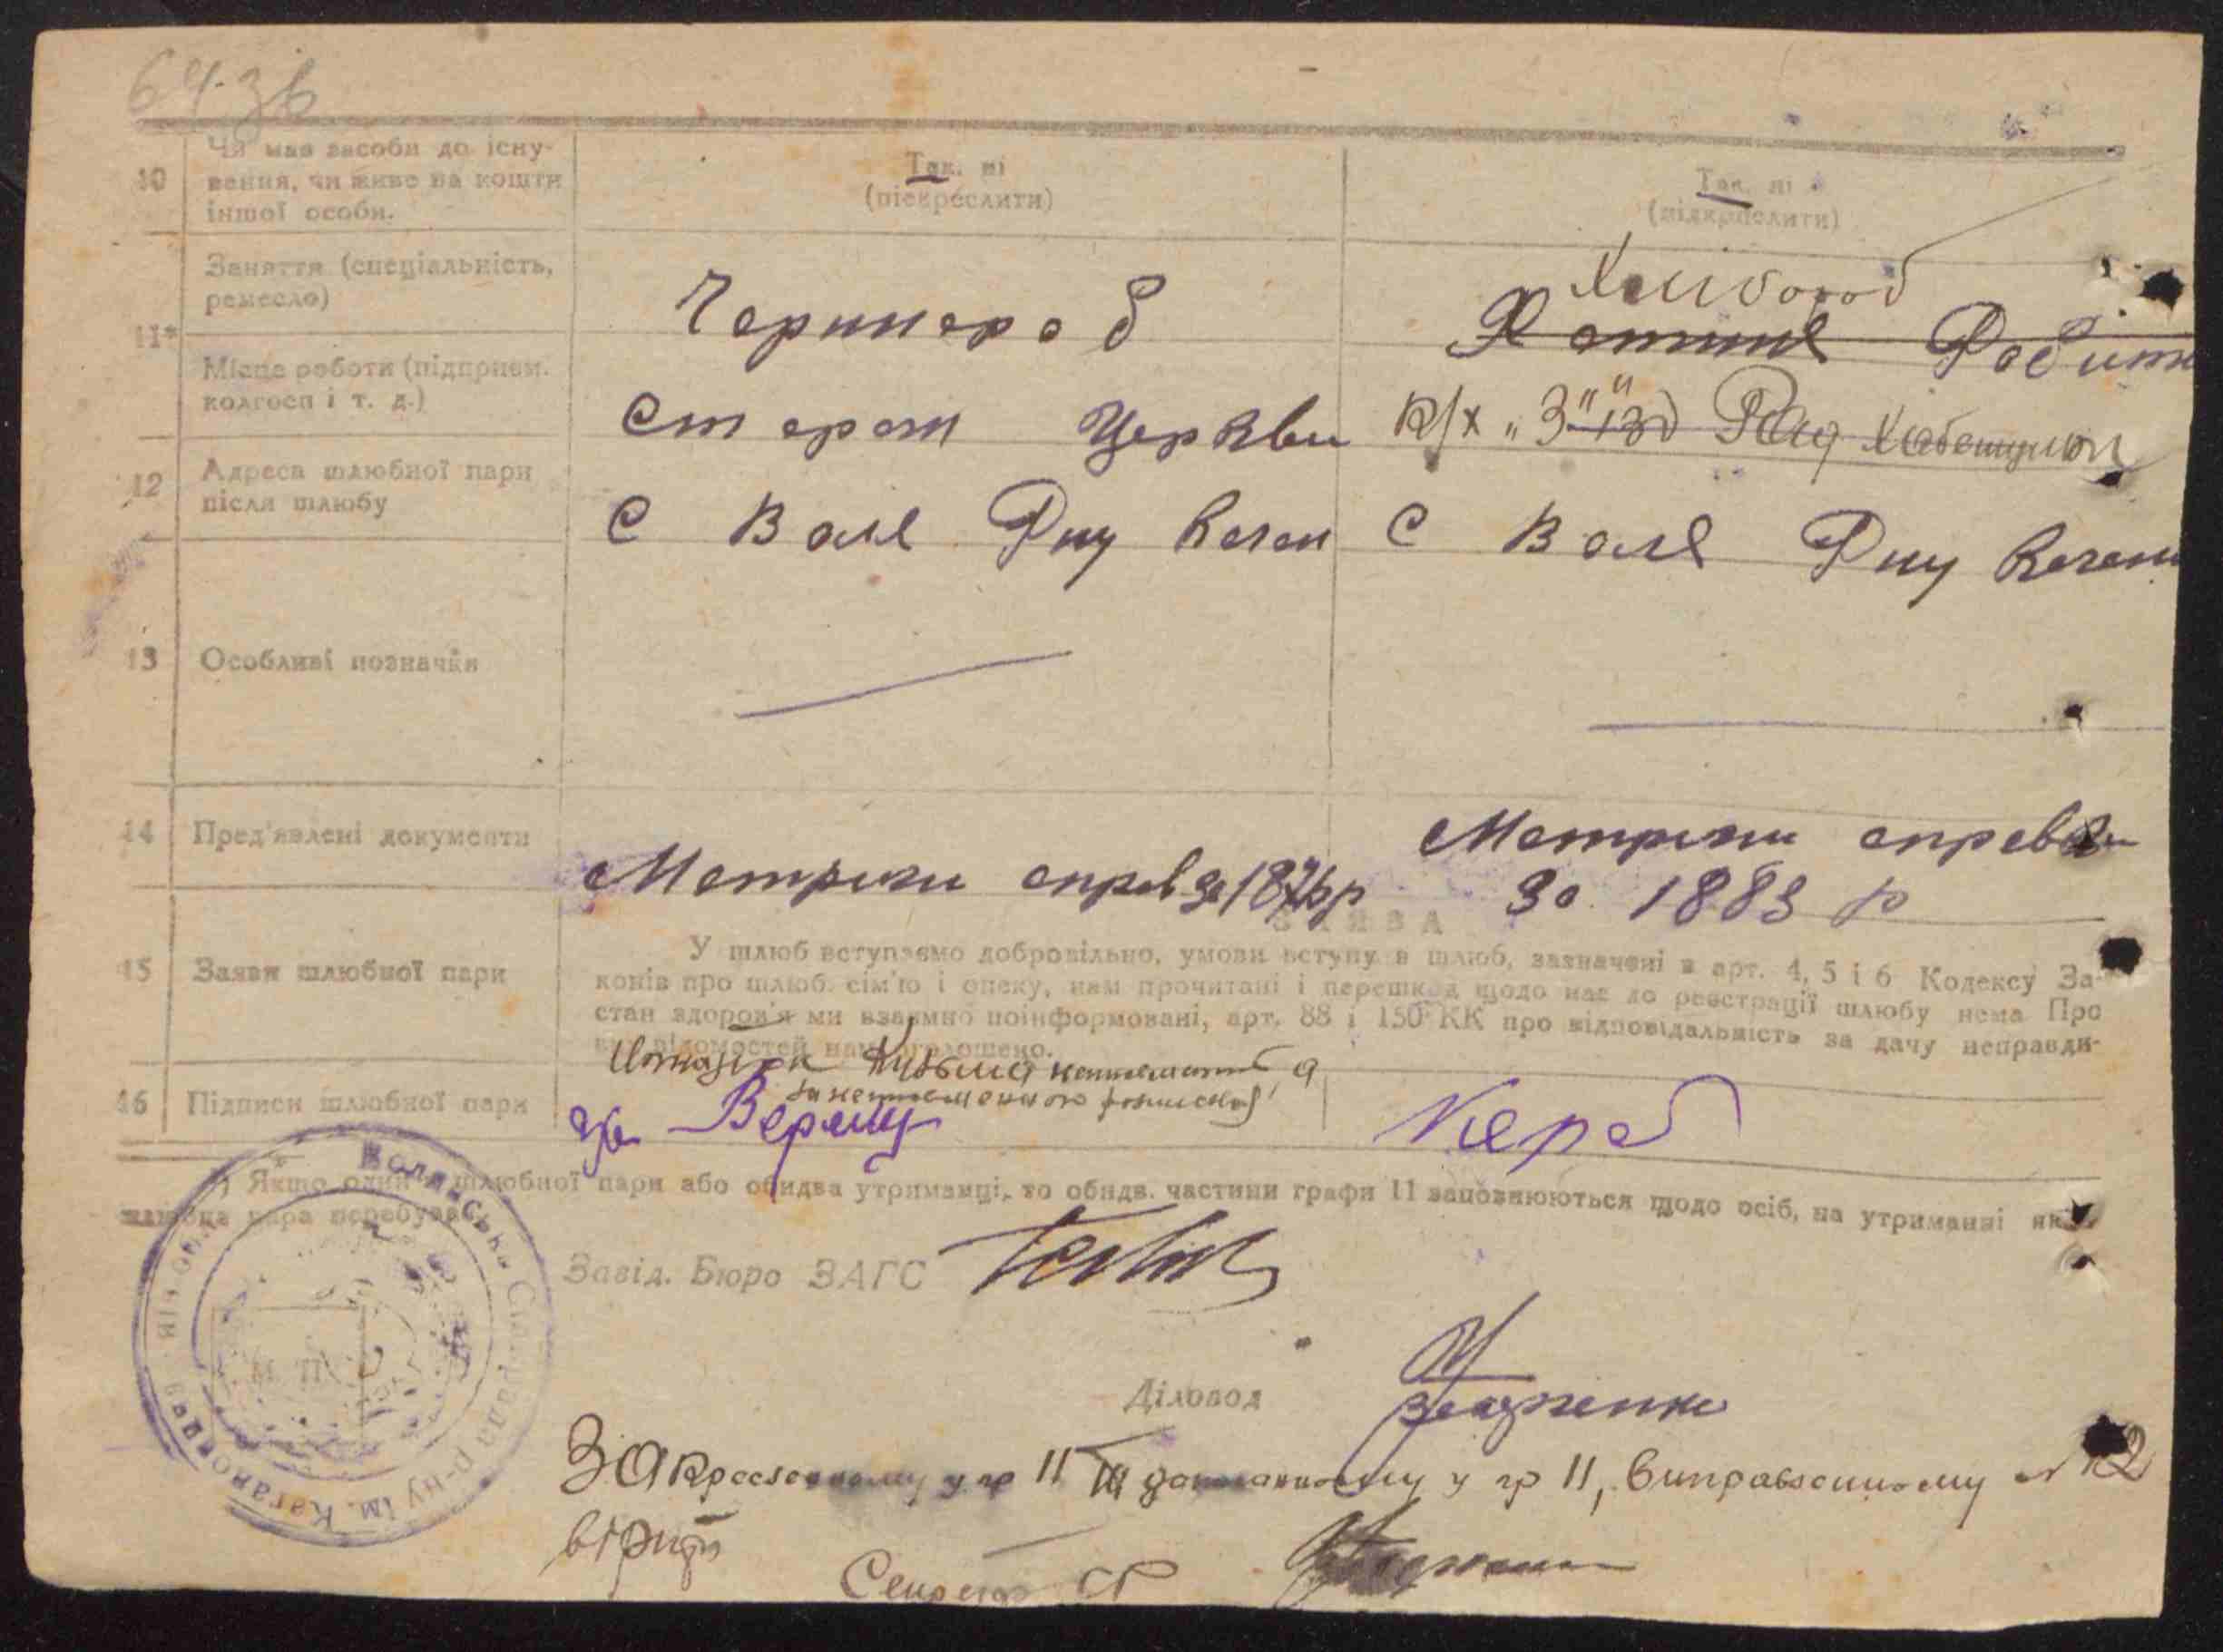 64-зв
10
Чи має засоби до існу-
вання, чи живе на кошти
іншої особи.
Так. ні
(підкреслити)
Так. ні
(підкреслити)
11*
Заняття (спеціальність,
ремесло)
Хлібороб
Місце роботи (підприєм.
колгосп і т. д.)
Сторож Церкви
к/х „З"їзд Рад
12
Адреса шлюбної пари
після шлюбу
С Воля Рну Каган
С Воля Рну Каган
13
Особливі позначки
14
Пред'явлені документи
Метрики справ за 187
Метрики справки
За 1883 р
15
Заяви шлюбної пари
ЗАЯВА
У шлюб вступаємо добровільно, умови вступу в шлюб, зазначені в арт. 4, 5 і 6 Кодексу За-
конів про шлюб. сім'ю і опеку, нам прочитані і перешкод щодо нас до реєстрації шлюбу нема Про
стан здоров'я ми взаємно поінформовані, арт. 88 і 150 КК про відповідальність за дачу неправди-
вих відомостей нам оголошено.
16
Підписи шлюбної пари
Кузьма
за
*) Якщо один з шлюбної пари або обидва утриманці, то обидв. частини графи 11 заповнюються щодо осіб, на утриманні яких
шлюбна пара перебуває.
Завід. Бюро ЗАГС
М. П.
Волянська Сільрада р-ну ім. Кагановича
Діловод
Закресленому у гр 11 дописаному у гр 11, виправленому 12
вірити
Секретар СР